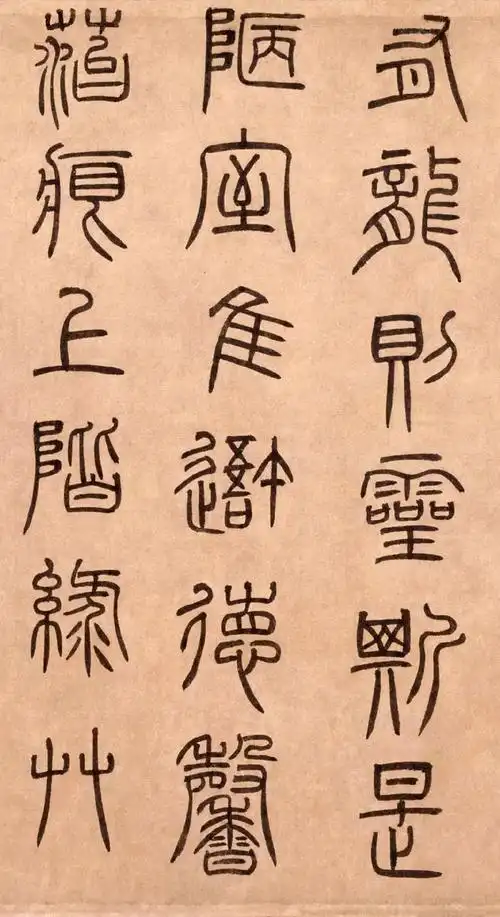 有龍則靈斯是
陋室隹吾德馨
菭痕上階綠艸